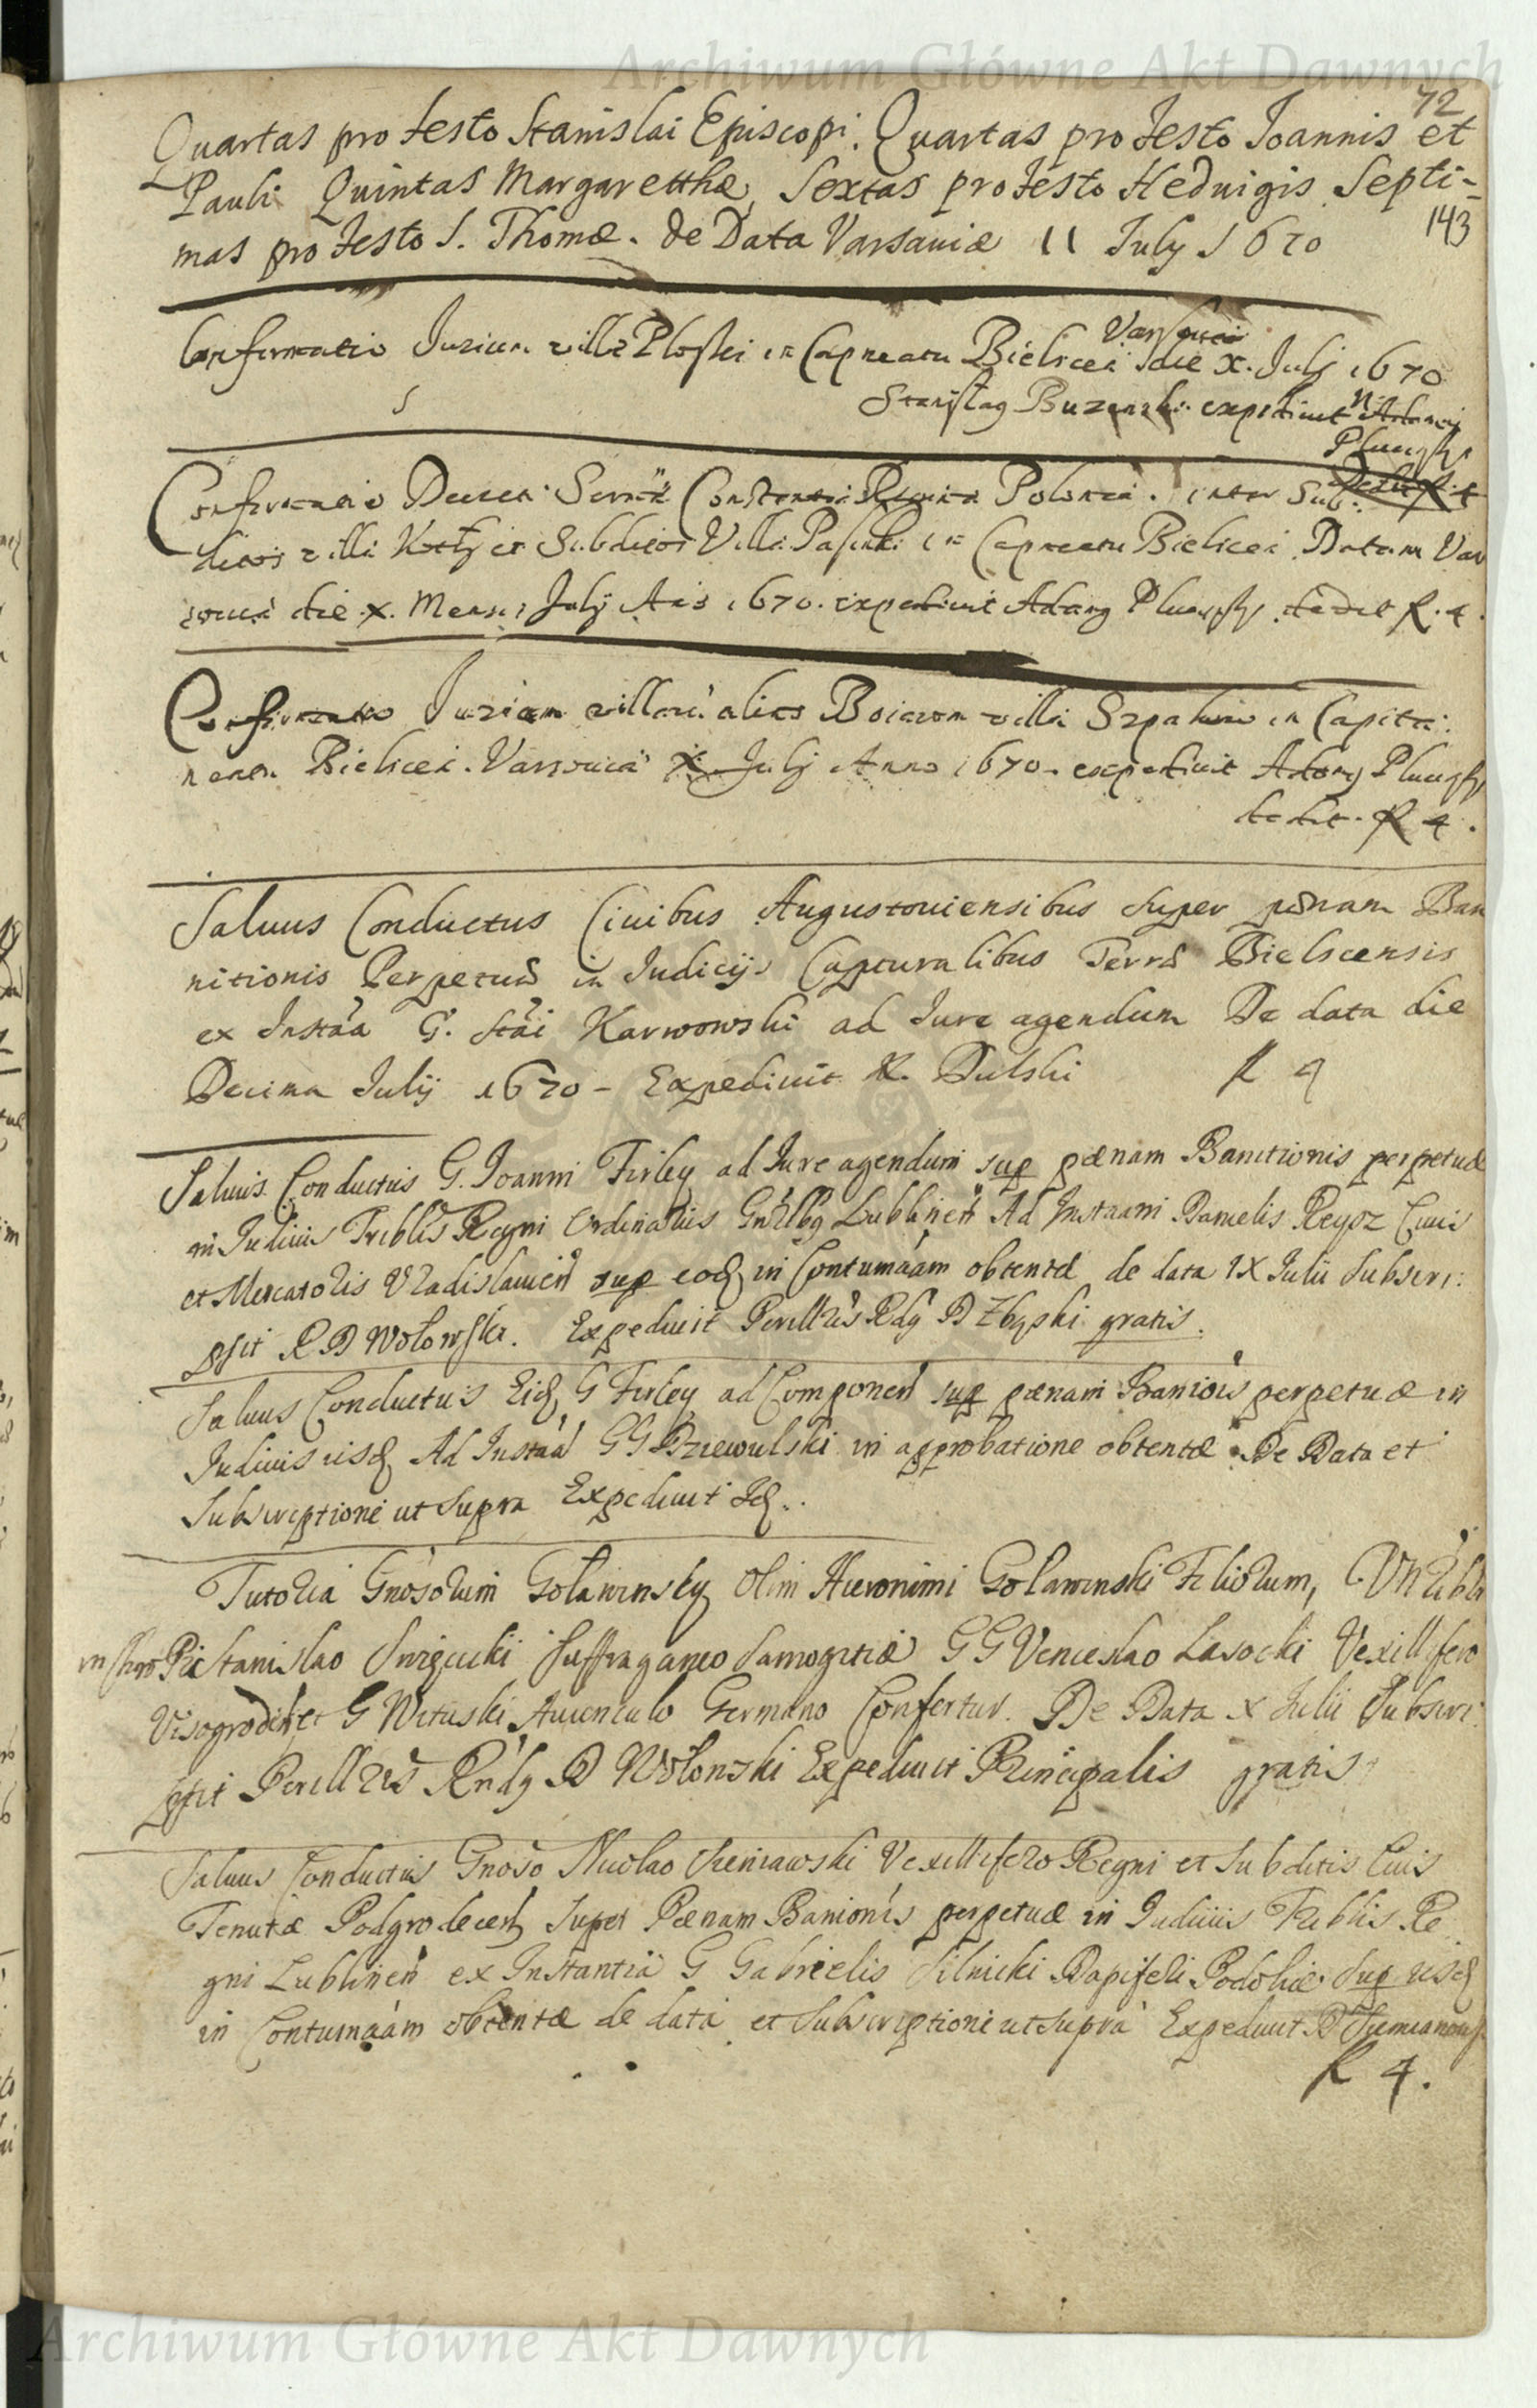 Archiwum Główne Akt Dawnych
72
Quartas pro festo Stanislai Episcopi. Quartas pro festo Joannis et
Pauli Quintas Margaretthæ, Sextas pro festo Heduigis Septi-
143
mas pro festo S. Thomæ. de Data Varsauiæ 11 July 1670
Varsouiæ
Confirmatio Jurium villæ Ploski in Capneatu Bielicen die X. Julj 1670
Stanislaq Buzenski expediuit
Confirmatio Decreti Constantiæ Reginæ Poloniæ. inter Sub:
ditos villæ et Subditos Villæ Pasinki in Capneatu Bielicen Datum Var
souiæ die X. Mensis Julij 1670. expediuit Adamq dedit R. 4.
Confirmatio Jurium alias Boiarom villæ in Capita:
neatu Bielicen. Varsouiæ X Julij Anno 1670. expediuit Adamq
dedit. R 4.
Saluus Conductus Ciuibus Augustouiensibus super pœnam Ban
nitionis Perpetuæ in Judicijs Capturalibus Terræ Bielscensis
ex Instãa G. Stãi Karwowski ad Jure agendum De data die
Decima Julij 1670 – Expediuit X. Dulski R 4
Saluus Conductus G. Joanni Firley ad Jure agendum sup pænam Banitionis perpetuæ
in Judiciis Triblis Regni Ordinariis Lublinen Ad Instaam Danielis Ciuis
et Mercatoris Vladislauien sup eoq in Contumãam obtentæ de data IX Julii Subscri:
psit R D Wolowski. Expediuit Perillris Rdq D Zbąski gratis.
Saluus Conductus Eiq G Firley ad Componen sup pænam Baniois perpetuæ in
Judiciis iisq Ad Instaã GG Dziewulski in approbatione obtentæ. De Data et
Subscriptione ut supra Expediuit Iq.
Tutoria Gnosorum Golawinskq olim Hieronimi Golawinski Filiorum,
Stanislao Swięcicki Suffraganeo Samogitiæ GG Venceslao Lasocki Vexillifero
Visogroden et G Wituski Auunculo Germano Confertur. De Data X Julii Subscri:
psit Perillris Rndq D Wolowski Expediuit Principalis gratis
Saluus Conductus Gnoso Nicolao Sieniawski Vexillifero Regni et Subditis Euis
Tenutæ super Pænam Banionis perpetuæ in Judiciis Triblis Re
gni Lublinen ex Instantia G Gabrielis Silnicki Dapiferi Podoliæ. sup iisq
in Contumãam obtentæ de data et Subscriptione ut supra Expediuit D
R 4.
Archiwum Główne Akt Dawnych